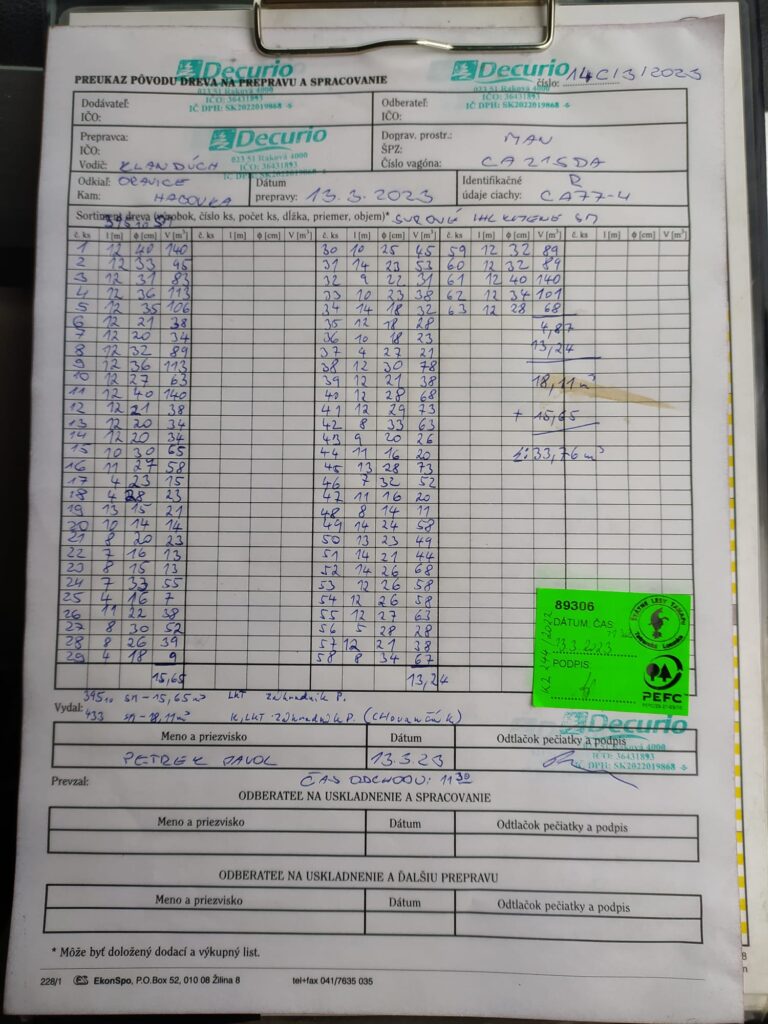 Decurio
023 51 Raková 4000
IČO: 36431893
IČ DPH: SK2022019868 -6-
Decurio
023 51 Raková 4000
IČO: 36431893
IČ DPH: SK2022019868 -6-
PREUKAZ PÔVODU DREVA NA PREPRAVU A SPRACOVANIE
číslo: 14C/3/2023
Dodávateľ:
IČO:
Odberateľ:
IČO:
Prepravca:
IČO:
Vodič: KLANDÚCH
Decurio
023 51 Raková 4000
IČO: 36431893
IČ DPH: SK2022019868 -6-
Doprav. prostr.: MAN
ŠPZ:
Číslo vagóna: CA215DA
Odkiaľ: ORAVICE
Kam: HABOVKA
Dátum prepravy: 13.3.2023
Identifikačné R
údaje ciachy: CA77-4
Sortiment dreva (výrobok, číslo ks, počet ks, dĺžka, priemer, objem)*
č. ks l [m] ϕ [cm] V [m³] č. ks l [m] ϕ [cm] V [m³] č. ks l [m] ϕ [cm] V [m³] č. ks l [m] ϕ [cm] V [m³] č. ks l [m] ϕ [cm] V [m³]
1 12 40 140 30 10 25 45 59 12 32 89
2 12 33 95 31 14 23 53 60 12 32 89
3 12 31 83 32 9 22 31 61 12 40 140
4 12 36 113 33 10 23 38 62 12 34 101
5 12 35 106 34 14 18 32 63 12 28 68
6 12 21 38 35 12 18 28 4,87
7 12 20 34 36 10 18 23 13,24
8 12 32 89 37 4 27 21
9 12 36 113 38 12 30 78 18,11 m³
10 12 27 63 39 12 21 38
11 12 40 140 40 12 28 68 + 15,65
12 12 21 38 41 12 29 73
13 12 20 34 42 8 33 63
14 12 20 34 43 9 20 26 Σ: 33,76 m³
15 10 30 65 44 11 16 20
16 11 27 58 45 13 28 73
17 4 23 15 46 7 32 52
18 4 28 23 47 11 16 20
19 13 15 21 48 8 14 11
20 10 14 14 49 14 24 58
21 8 20 23 50 13 23 49
22 7 16 13 51 14 21 44
23 8 15 13 52 14 26 68
24 7 33 55 53 12 26 58
25 4 16 7 54 12 26 58
26 11 22 38 55 12 27 63
27 8 30 52 56 5 28 28
28 8 26 39 57 12 21 38
29 4 18 9 58 8 34 67
15,65 13,24
89306
DÁTUM, ČAS
13.3.2023
PODPIS
ŠTÁTNE LESY TANAPU
Tatranská Lomnica
PEFC
39510 SM - 15,65 m³ LKT Záhradník P.
433 SM - 18,11 m³ K, LKT Záhradník P.
Vydal:
Decurio
023 51 Raková 4000
IČO: 36431893
IČ DPH: SK2022019868 -6-
Meno a priezvisko Dátum Odtlačok pečiatky a podpis
PETREK PAVOL 13.3.23
Prevzal: ČAS ODCHODU: 11 30
ODBERATEĽ NA USKLADNENIE A SPRACOVANIE
Meno a priezvisko Dátum Odtlačok pečiatky a podpis
ODBERATEĽ NA USKLADNENIE A ĎALŠIU PREPRAVU
Meno a priezvisko Dátum Odtlačok pečiatky a podpis
* Môže byť doložený dodací a výkupný list.
228/1 EkonSpo, P.O.Box 52, 010 08 Žilina 8 tel+fax 041/7635 035